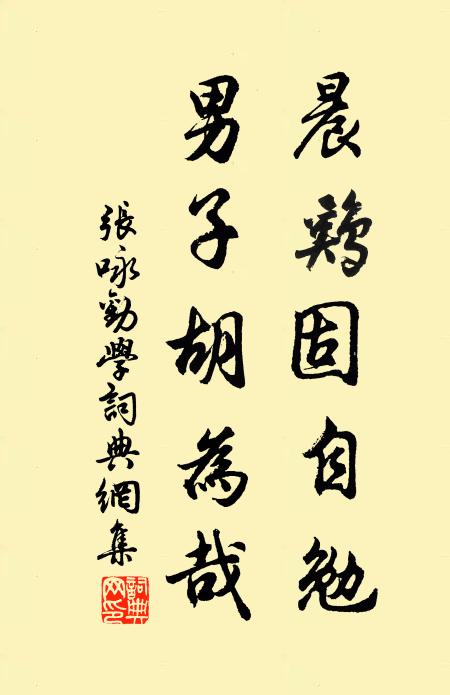 晨鷄固自勉
男子胡為哉
張咏勸學詞典網集
詞典網印